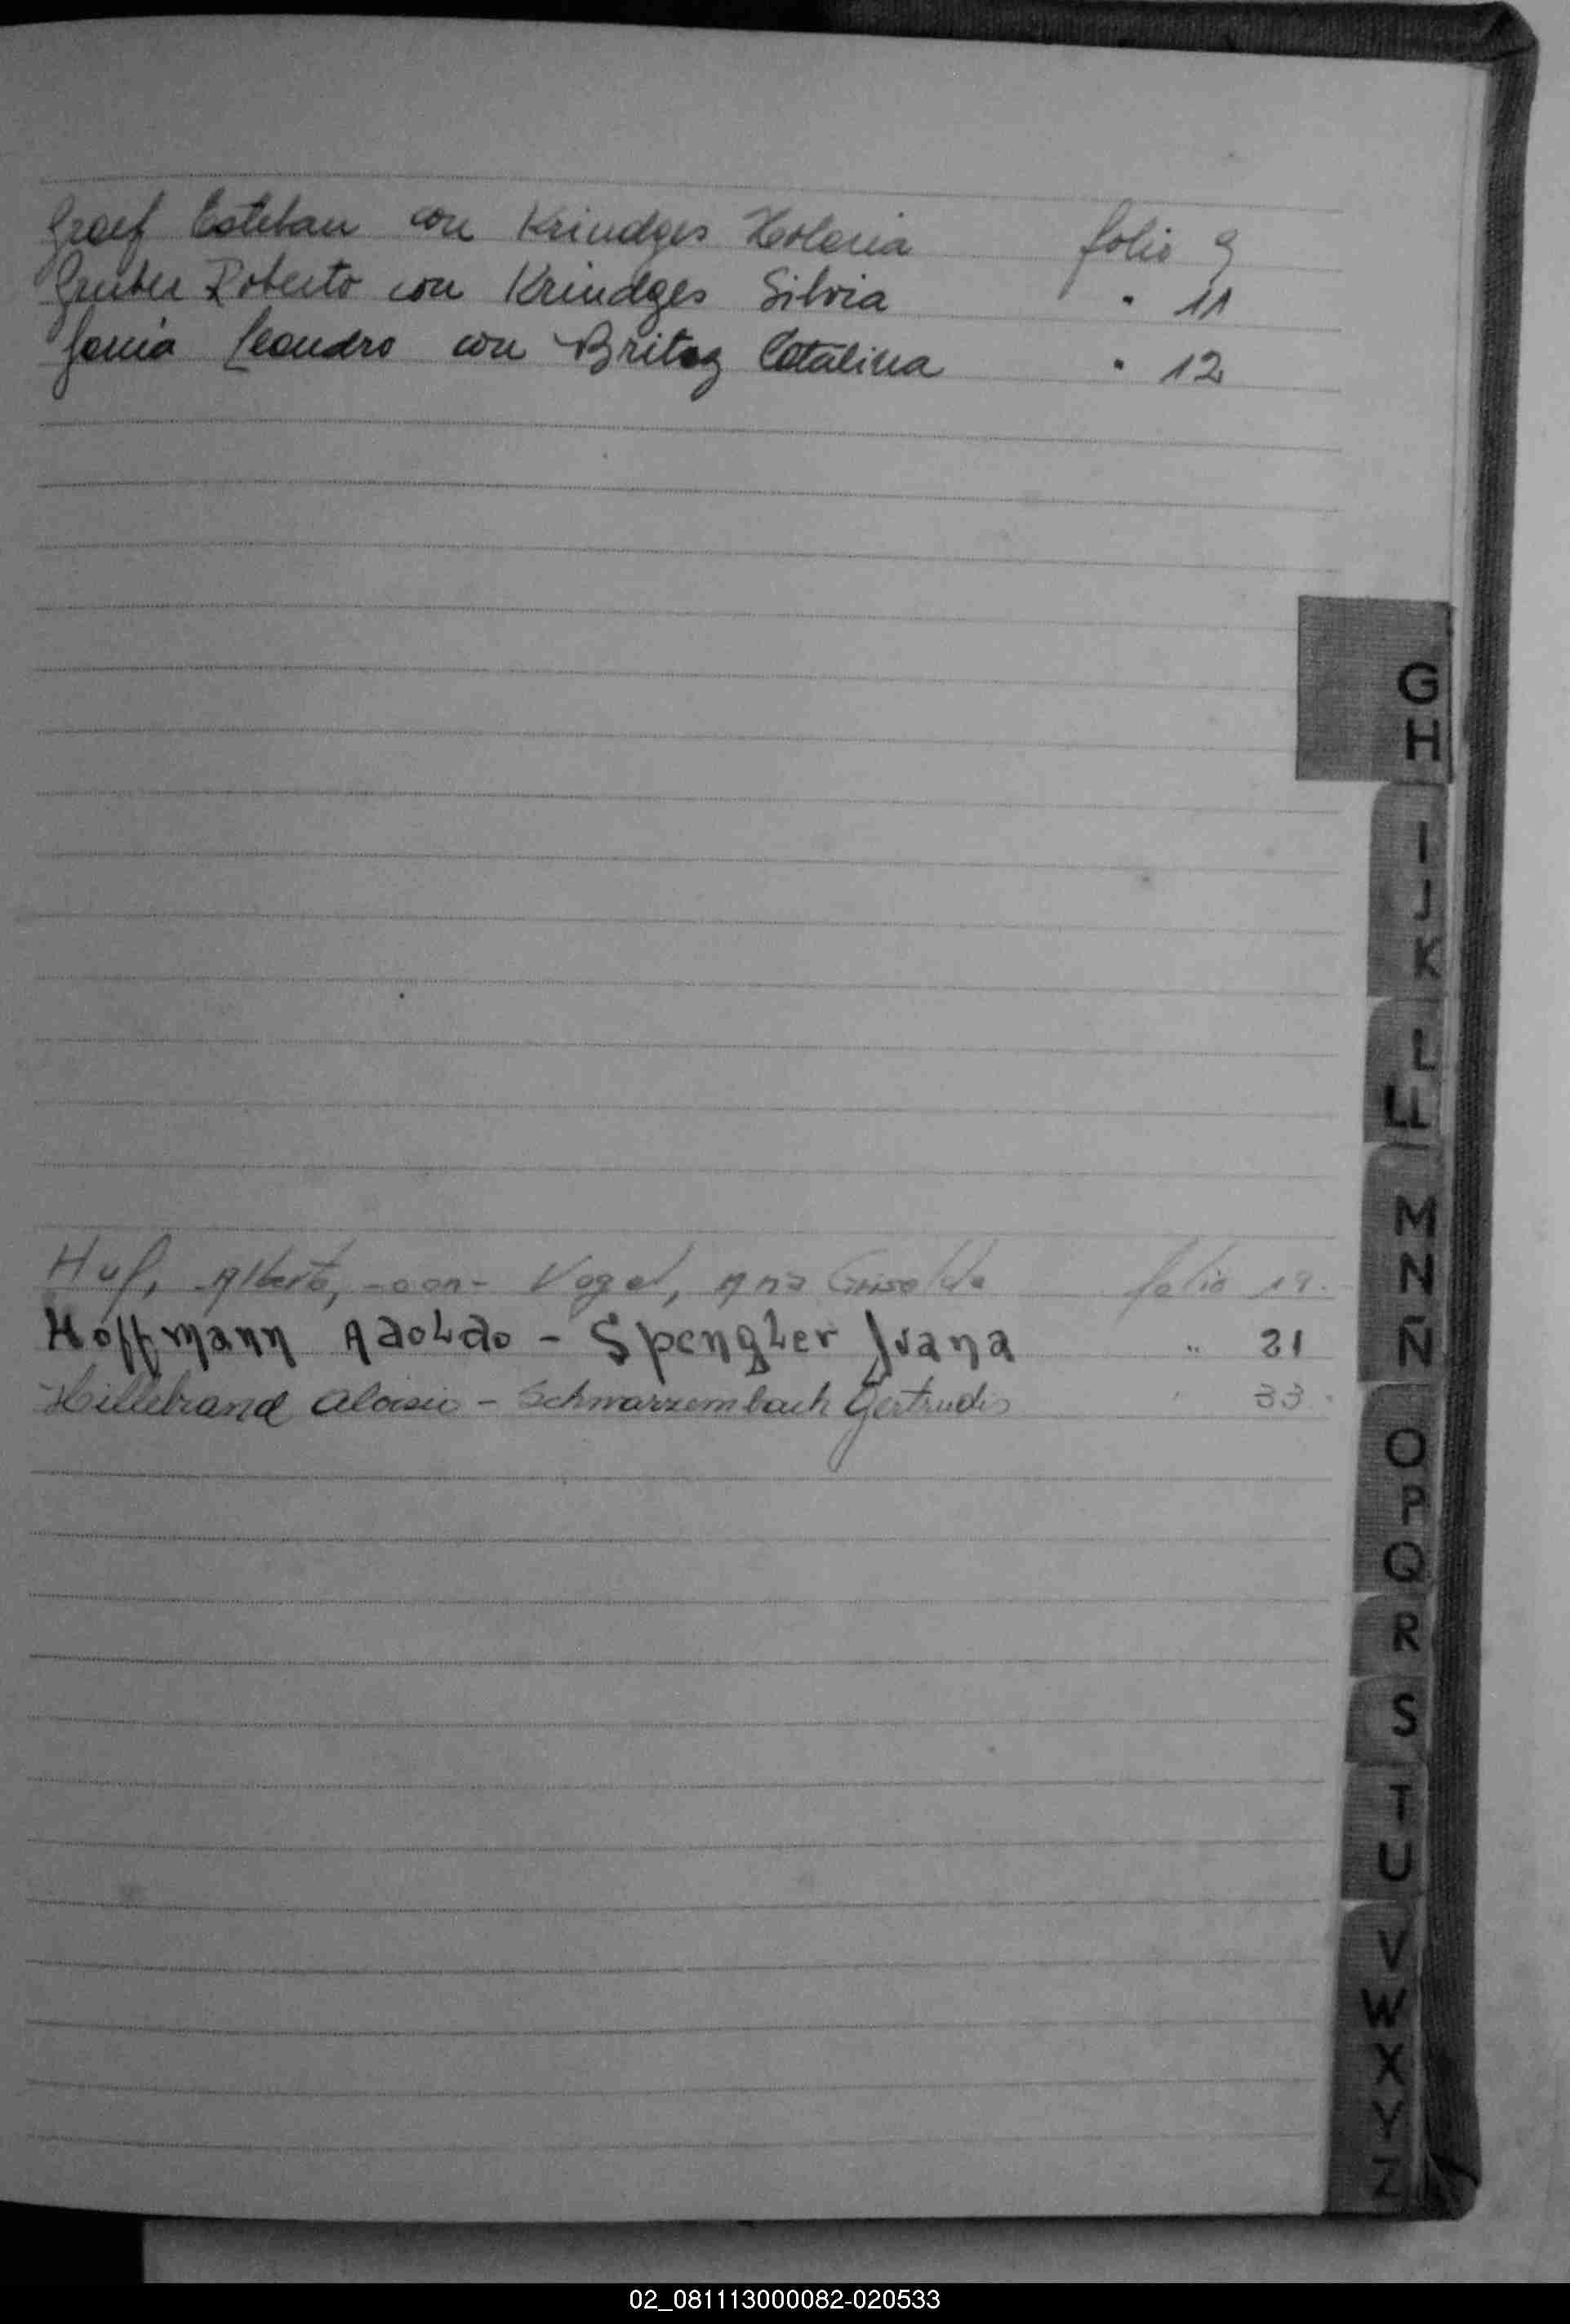 Graef Esteban con Krindges Xolonia folio 9
Gruber Roberto con Krindges Silvia " 11
Leandro con Britez Catalina " 12
G
H
I
J
K
L
LL
M
N
Ñ
O
P
Q
R
S
T
U
V
W
X
Y
Z
Huf, Alberto, -con- Vogel, Ana Griselda folio 19.
Hoffmann Adoldo - Spengler Ivana " 21
Hillebrand Aloisio - Schwarzembach Gertrudis " 33.
02_081113000082-020533